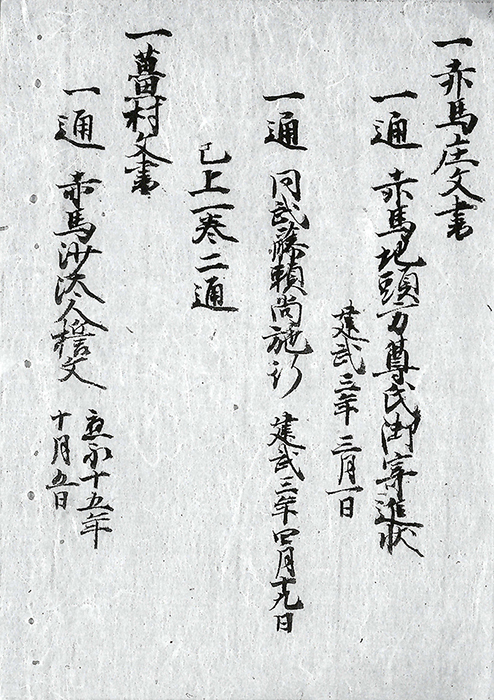 一赤馬庄文書
一通 赤馬地頭方尊氏御寄進状
建武三年三月一日
一通 同武藤頼尚施行 建武三年四月十九日
已上一巻二通
一薑村文書
一通 赤馬沙汰人證文 応永十五年
十月五日